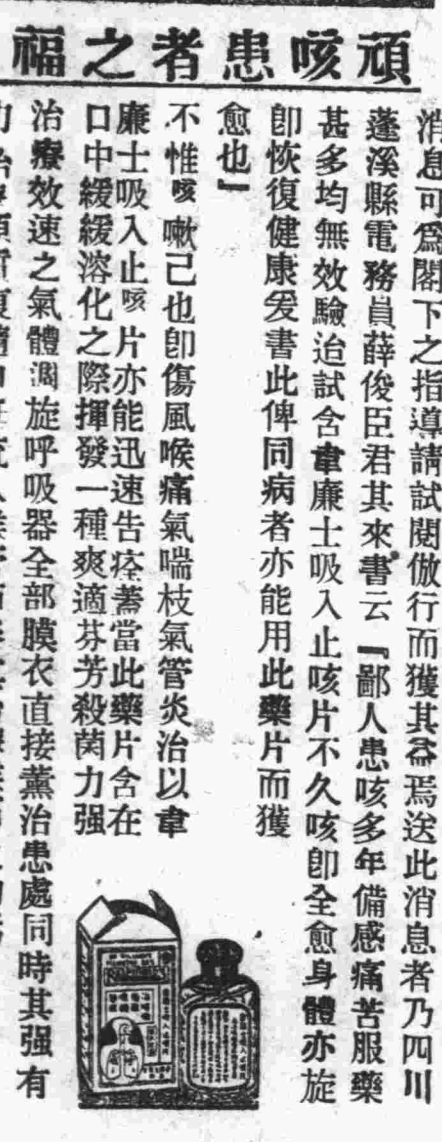 頑咳患者之福
消息可爲閣下之指導請試閱倣行而獲其益焉送此消息者乃四川
蓬溪縣電務員薛俊臣君其來書云『鄙人患咳多年備感痛苦服藥
甚多均無效驗迨試含韋廉士吸入止咳片不久咳卽全愈身體亦旋
卽恢復健康爰書此俾同病者亦能用此藥片而獲
愈也』
不惟咳嗽己也卽傷風喉痛氣喘枝氣管炎治以韋
廉士吸入止咳片亦能迅速告痊蓋當此藥片含在
口中緩緩溶化之際揮發一種爽適芬芳殺菌力强
治療效速之氣體凋旋呼吸器全部膜衣直接薰治患處同時其强有